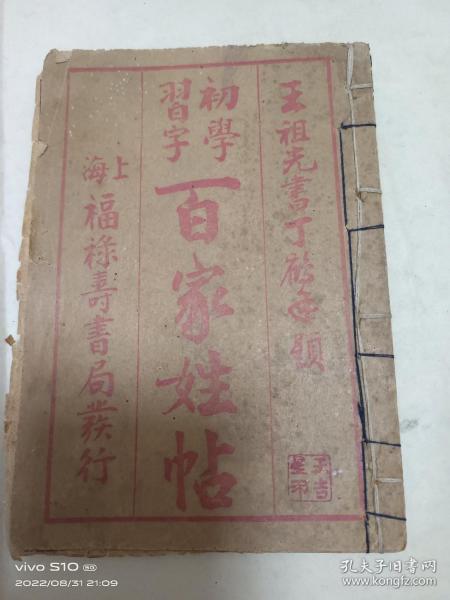 王祖光書丁□□題
初學
習字
百家姓帖
上海
福祿壽書局發行
vivo S10 5G
2022/08/31 21:09
孔夫子旧书网
www.kongfz.com